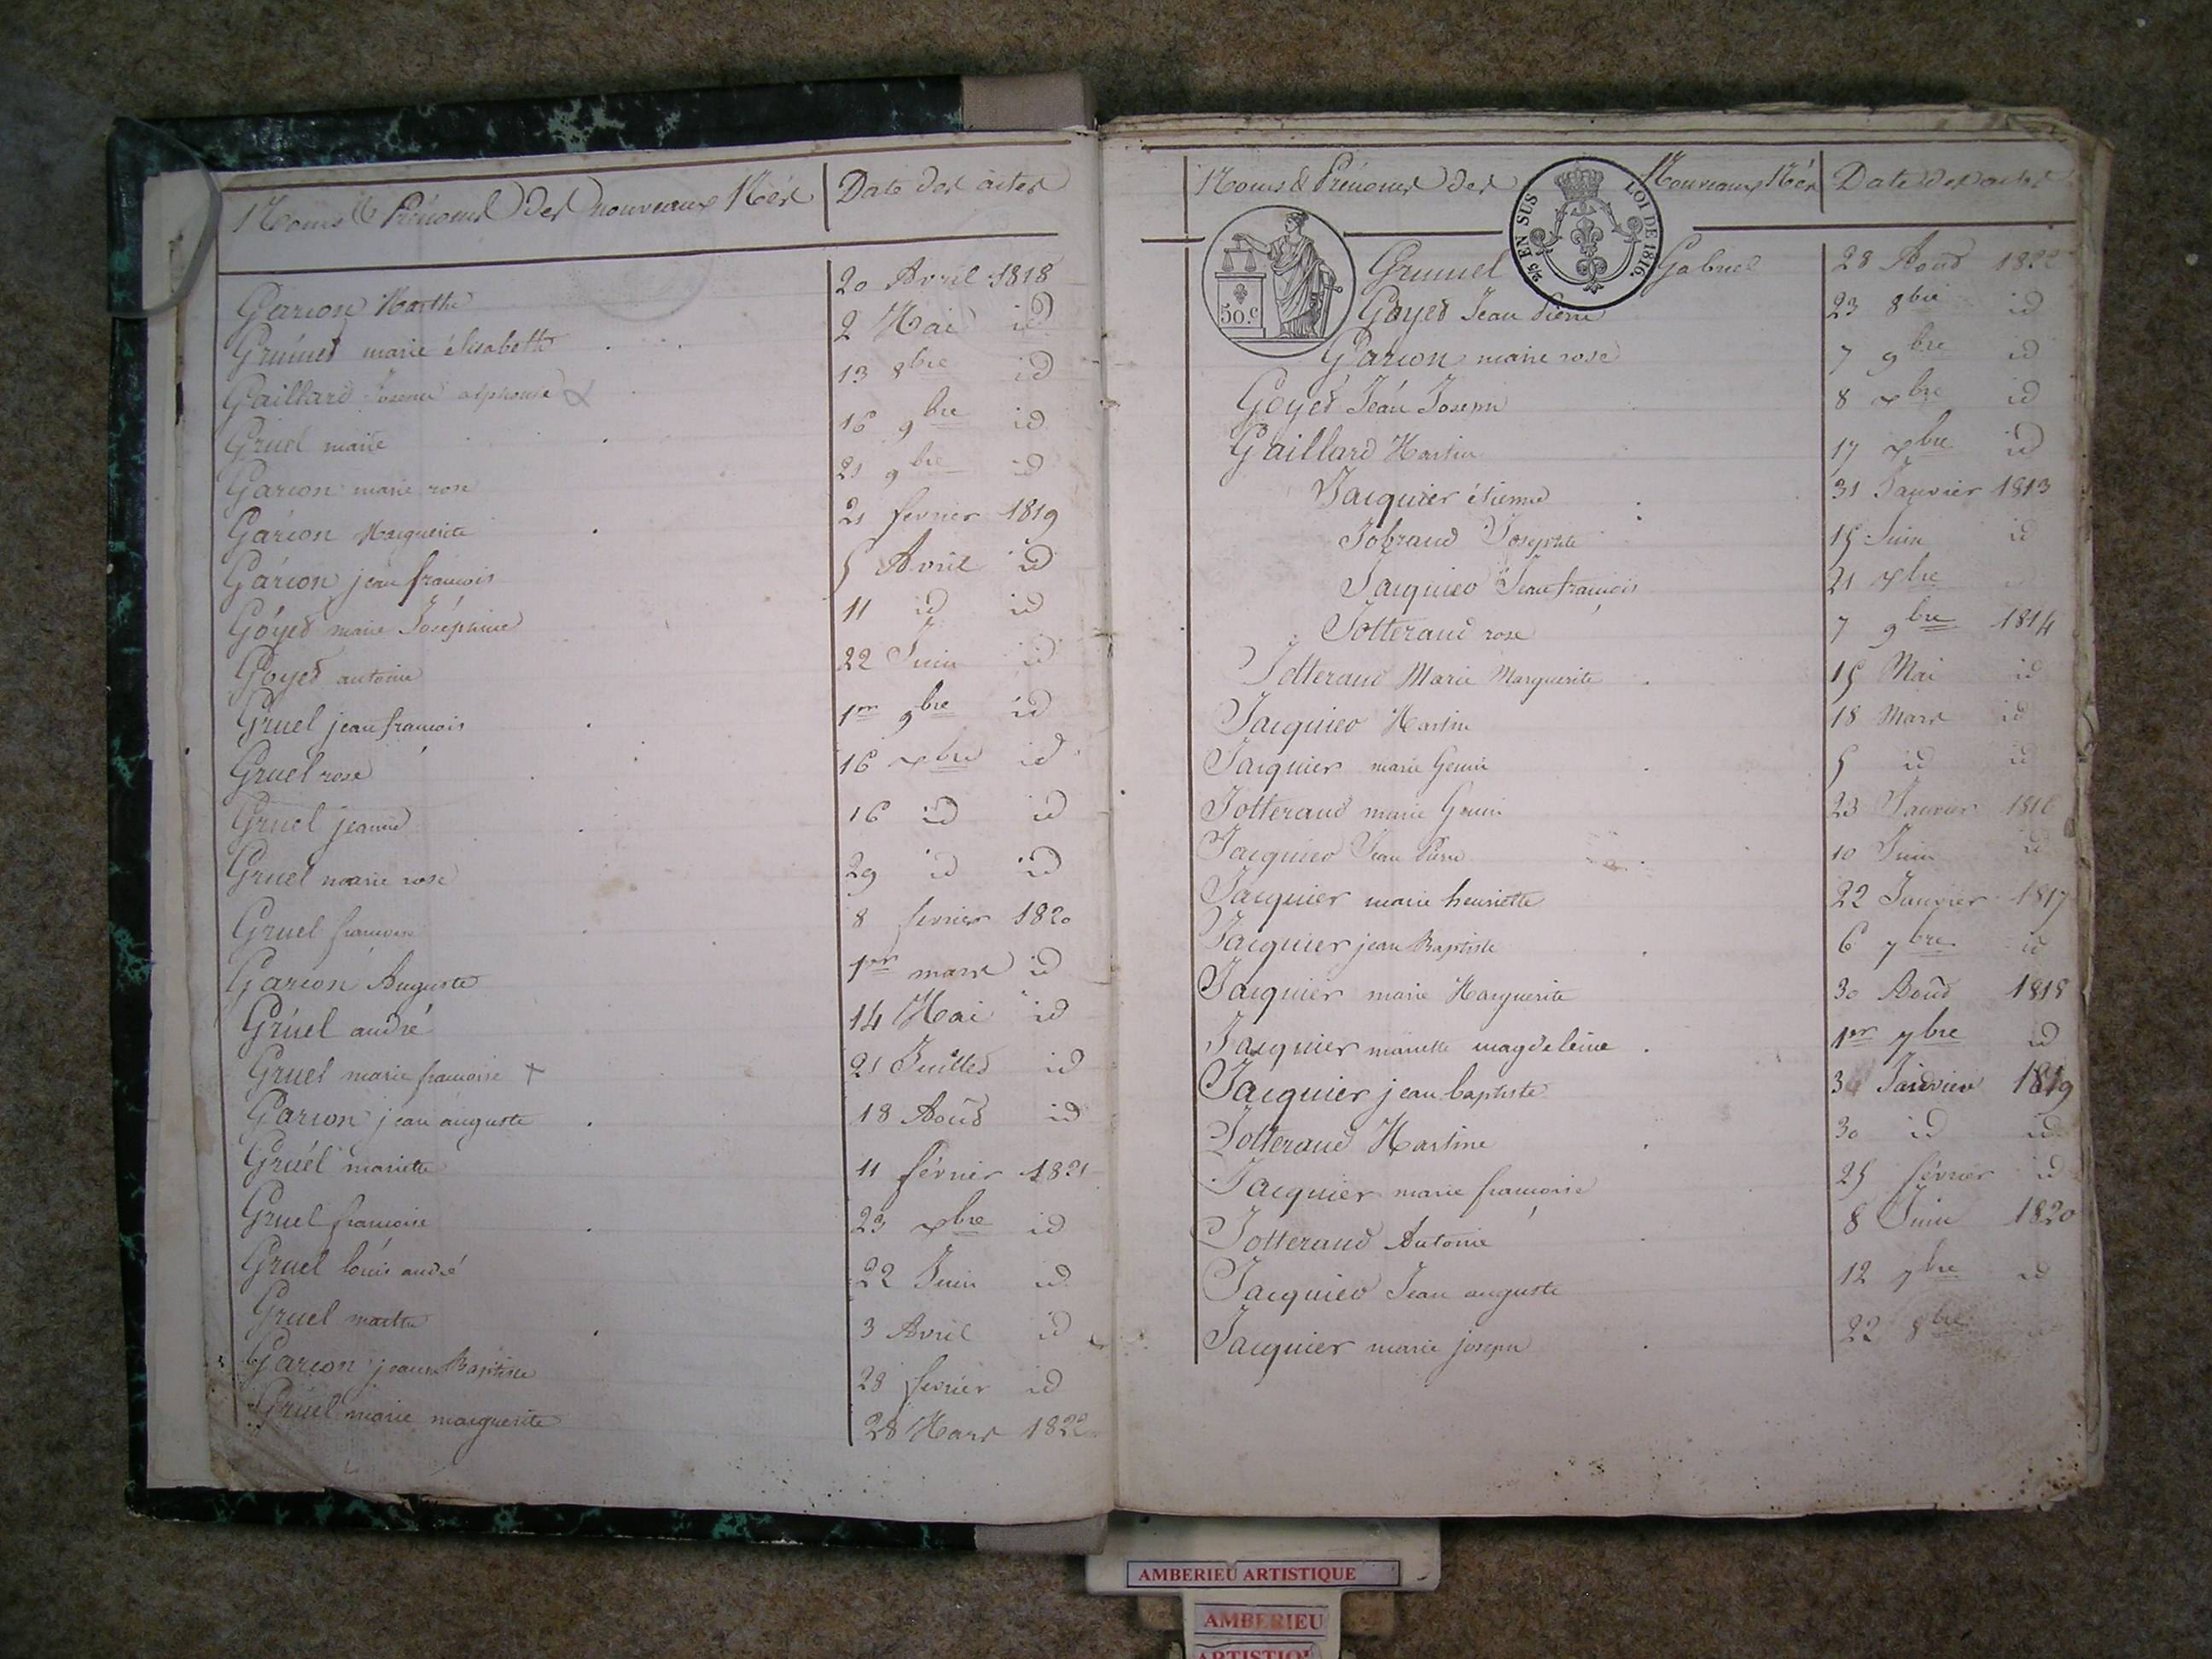 Noms & Prénoms des nouveaux Nés Date des actes
Garcon Marthe 20 Avril 1818
Grumet marie élisabeth 2 Mai id
Gaillard Joseph alphonse 13 8bre id
Gruel marie 16 9bre id
Garcon marie rose 21 9bre id
Garcon Marguerite 21 fevrier 1819
Garcon jean francois 5 Avril id
Goyet marie Joséphine 11 id id
Goyet antoine 22 Juin id
Gruel jean francois 1er 9bre id
Gruel rose 16 xbre id
Gruel jeanne 16 id id
Gruel marie rose 29 id id
Gruel francoise 8 fevrier 1820
Garcon Auguste 1er mars id
Gruel andré 14 Mai id
Gruel marie francoise + 21 Juillet id
Garcon jean auguste 18 Août id
Gruel mariette 11 février 1821
Gruel francoise 23 xbre id
Gruel louis andré 22 Juin id
Gruel marthe 3 Avril id
Garcon jean Baptiste 28 fevrier id
Gruel marie marguerite 28 Mars 1822
Noms & Prénoms des Nouveaux Nés Date des actes
2/5 EN SUS LOI DE 1816.
50.c
Grumel Gabriel 28 Août 1822
Goyet Jean Pierre 23 8bre id
Garcon marie rose 7 9bre id
Goyet Jean Joseph 8 xbre id
Gaillard Martin 17 xbre id
Jacquier étienne 31 Janvier 1813
Josephte 15 Juin id
Jacquier Jean francois 21 xbre
Jotterand rose 7 9bre 1814
Jotterand Marie Marguerite 15 Mai id
Jacquier Martin 18 Mars id
Jacquier marie 5 id id
Jotterand marie 23 Janvier
Jacquier Jean Pierre 10 Juin id
Jacquier marie henriette 22 Janvier 1817
Jacquier jean Baptiste 6 7bre id
Jacquier marie Marguerite 30 Août 1818
Jacquier mariette magdeleine 1er 7bre id
Jacquier jean baptiste Janvier 1819
Jotterand Martine 30 id id
Jacquier marie francoise 25 février id
Jotterand Antoine 8 Juin 1820
Jacquier Jean auguste 12 7bre id
Jacquier marie joseph 22 8bre
AMBERIEU ARTISTIQUE
AMBERIEU
ARTISTIQUE